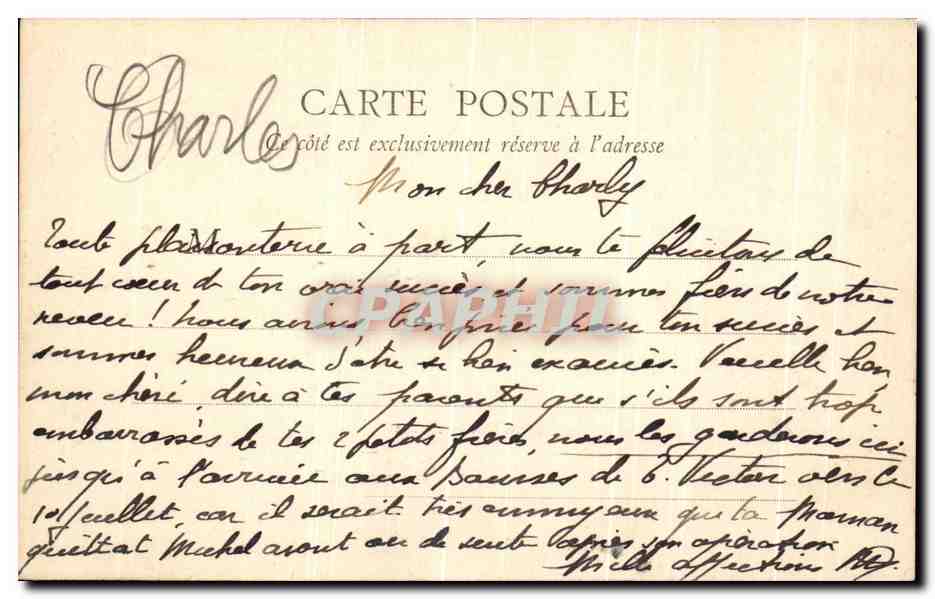 Charles
CARTE POSTALE
Ce côté est exclusivement réservé à l'adresse
Mon cher Charly
Toute plaisanterie à part, nous te félicitons de
tout cœur de ton vrai succès et sommes fiers de notre
neveu ! Nous avions bien prié pour ton succès et
CPAPHIL
sommes heureux d'être si bien exaucés. Veuille bien,
mon chéri, dire à tes parents que s'ils sont trop
embarrassés de tes 2 petits frères, nous les garderons ici
jusqu'à l'arrivée aux de Victor vers le
10 Juillet, car il serait très ennuyeux que ta Maman
quittât Michel avant ou de suite après son opération
Mille affections